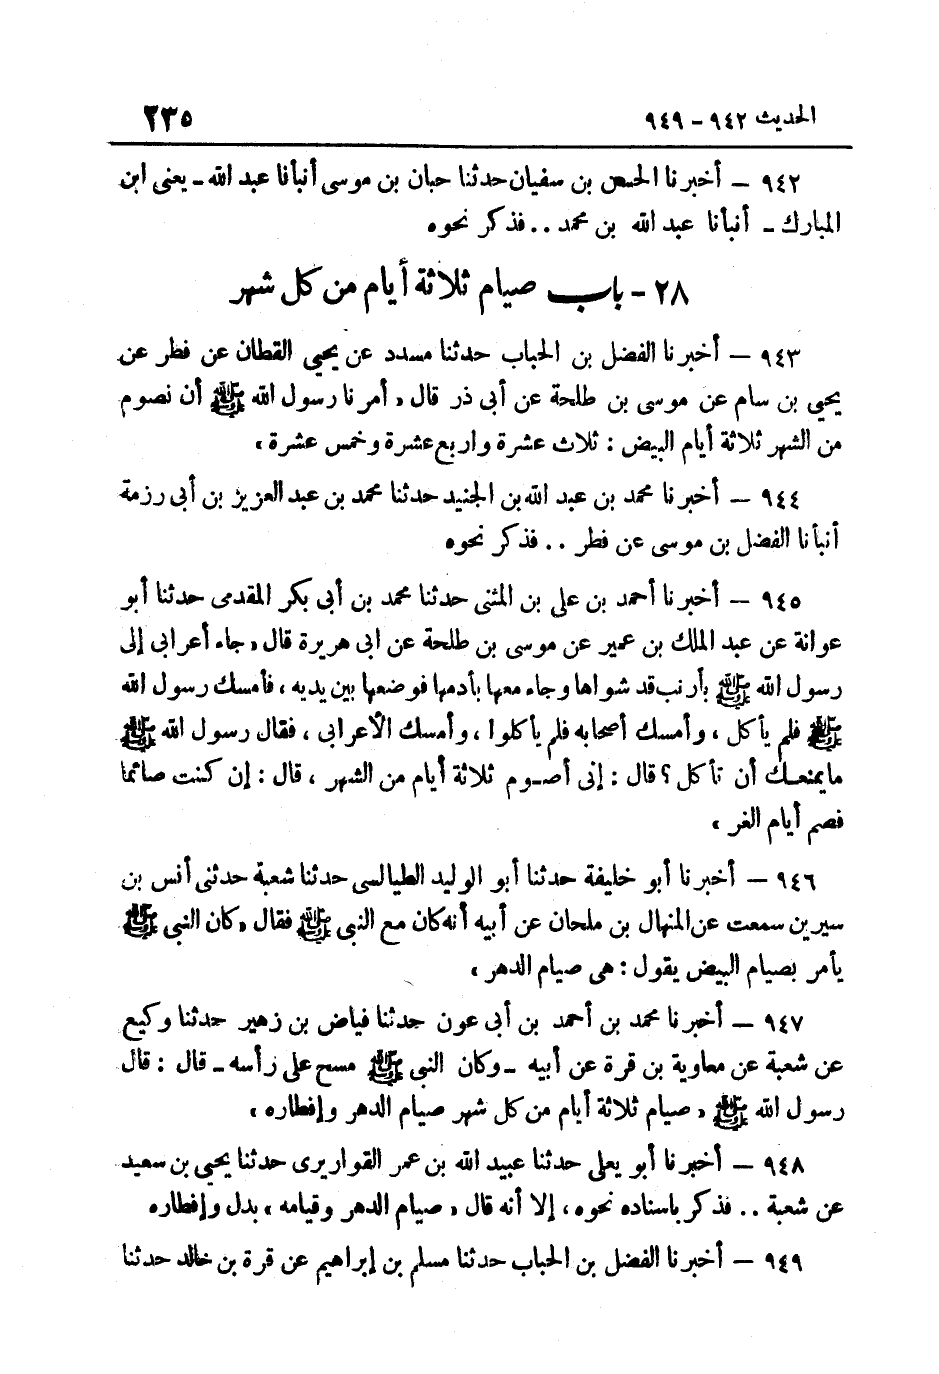 الحديث ٩٤٢ - ٩٤٩ ٢٣٥
٩٤٢ – أخبرنا الحسن بن سفيان حدثنا حبان بن موسى أنبأنا عبد الله ـ يعنى ابن
المبارك ـ أنبأنا عبد الله بن محمد .. فذكر نحوه
٢٨ - باب صيام ثلاثة أيام من كل شهر
٩٤٣ – أخبرنا الفضل بن الحباب حدثنا مسدد عن يحيى القطان عن فطر عن
يحيى بن سام عن موسى بن طلحة عن أبى ذر قال « أمرنا رسول الله ﷺ أن نصوم
من الشهر ثلاثة أيام البيض : ثلاث عشرة واربع عشرة وخمس عشرة »
٩٤٤ – أخبرنا محمد بن عبد الله بن الجنيد حدثنا محمد بن عبد العزيز بن أبى رزمة
أنبأنا الفضل بن موسى عن فطر .. فذكر نحوه
٩٤٥ – أخبرنا أحمد بن على بن المثنى حدثنا محمد بن أبى بكر المقدمى حدثنا أبو
عوانة عن عبد الملك بن عمير عن موسى بن طلحة عن ابى هريرة قال « جاء أعرابى إلى
رسول الله ﷺ بأرنب قد شواها وجاء معها بأدمها فوضعها بين يديه ، فأمسك رسول الله
ﷺ فلم يأكل ، وأمسك أصحابه فلم يأكلوا ، وأمسك الأعرابى ، فقال رسول الله ﷺ
مايمنعك أن تأكل ؟ قال : إنى أصوم ثلاثة أيام من الشهر ، قال : إن كنت صائما
فصم أيام الغر »
٩٤٦ – أخبرنا أبو خليفة حدثنا أبو الوليد الطيالسى حدثنا شعبة حدثنى أنس بن
سيرين سمعت عن المنهال بن ملحان عن أبيه أنه كان مع النبى ﷺ فقال « كان النبى ﷺ
يأمر بصيام البيض يقول : هى صيام الدهر »
٩٤٧ – أخبرنا محمد بن أحمد بن أبى عون حدثنا فياض بن زهير حدثنا وكيع
عن شعبة عن معاوية بن قرة عن أبيه ـ وكان النبى ﷺ مسح على رأسه ـ قال : قال
رسول الله ﷺ « صيام ثلاثة أيام من كل شهر صيام الدهر وإفطاره »
٩٤٨ – أخبرنا أبو يعلى حدثنا عبيد الله بن عمر القواريرى حدثنا يحيى بن سعيد
عن شعبة .. فذكر باسناده نحوه ، إلا أنه قال « صيام الدهر وقيامه » بدل وإفطاره
٩٤٩ – أخبرنا الفضل بن الحباب حدثنا مسلم بن إبراهيم عن قرة بن خالد حدثنا